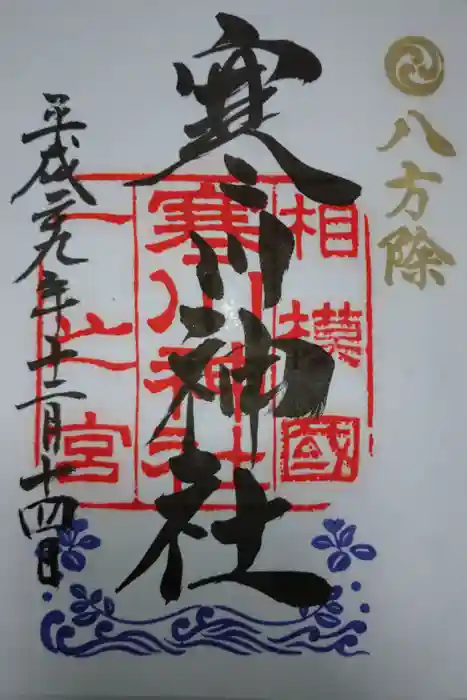 八方除
寒川神社
相模國
寒川神社
一之宮
平成二十九年十二月十四日